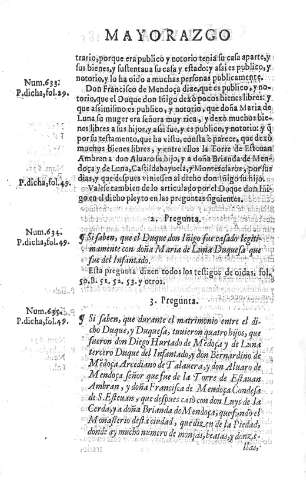 MAYORAZGO
trario, porque era publico y notorio tenia su casa aparte, y
sus bienes, y sustentaua su casa y estado: y assi es publico, y
notorio, y lo ha oido a muchas personas publicamente.
Num.633.
P.dicha, fol.29.
Don Francisco de Mendoça dize, que es publico, y no-
torio, que el Duque don Iñigo dexò pocos bienes libres: y
que assimismo es publico, y notorio, que doña Maria de
Luna su muger era señora muy rica, y dexò muchos bie-
nes libres a sus hijos, y assi fue, y es publico, y notorio: y q̃
por su testamento, que ha visto, consta o parece, que dexò
muchos bienes libres, y entre ellos la Torre de Esteuan
Ambran a don Aluaro su hijo, y a doña Brianda de Men-
doça y de Luna, Castildahayuela, y Montesclaros, por sus
dias, y que despues viniessen al dicho don Iñigo su hijo.
P.dicha, fol.49.
Valese tambien de lo articulado por el Duque don Iñi-
go en el dicho pleyto en las preguntas siguientes.
2. Pregunta.
Num.634.
P.dicha, fol.49.
¶ Si saben, que el Duque don Iñigo fue casado legiti-
mamente con doña Maria de Luna Duquesa que
fue del Infantado.
Esta pregunta dizen todos los testigos de oidas, fol.
50.B. 51. 52. 53. y otros.
3. Pregunta.
Num.635.
P.dicha, fol.49.
¶ Si saben, que durante el matrimonio entre el di-
cho Duque, y Duquesa, tuuieron quatro hijos, que
fueron don Diego Hurtado de Mẽdoça y de Luna
tercero Duque del Infantado, y don Bernardino de
Mẽdoça Arcediano de Talauera, y don Aluaro de
Mendoça señor que fue de la Torre de Estauan
Ambran, y doña Francisca de Mendoça Condesa
de S. Esteuan, que despues casò con don Luys de la
Cerda, y a doña Brianda de Mendoça, que fundò el
Monasterio desta ciudad, que dizen de la Piedad,
donde ay mucho numero de monjas, beatas, y donze-
llas,